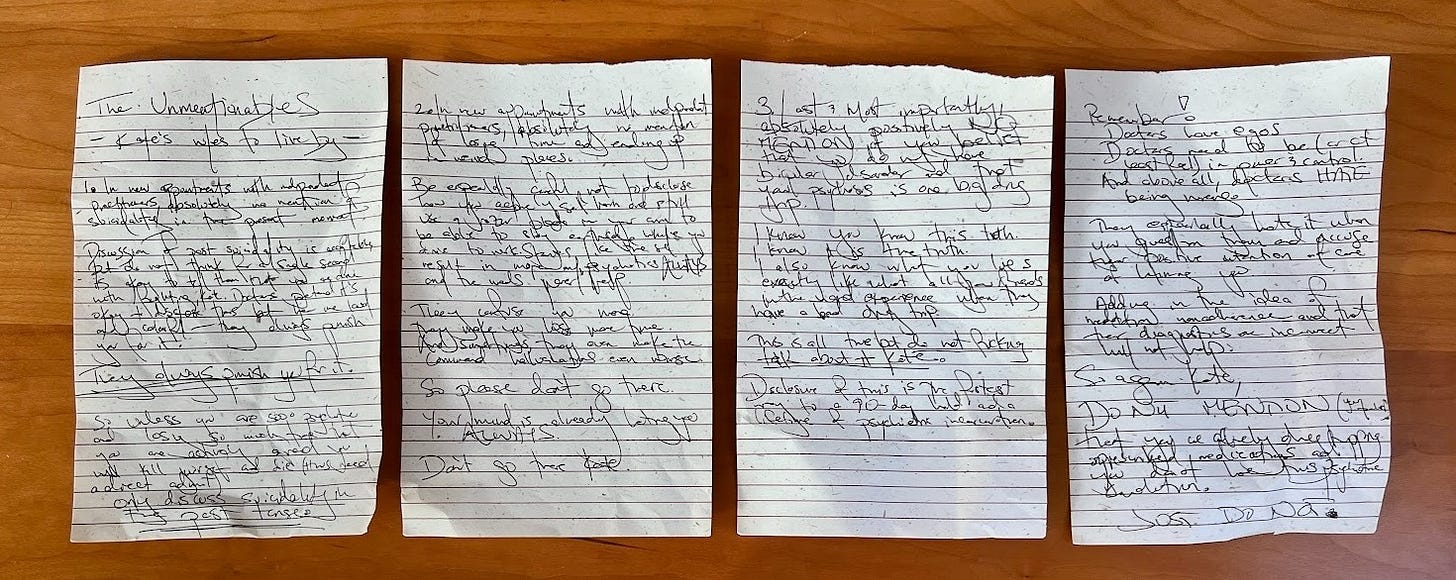 The Unmentionables
- Kate's rules to live by -
1. In new appointments with independent
practitioners, absolutely no mention of
suicidality in the present moment.
Discussion of past suicidality is acceptable
but do not think for a single second
it's okay to tell them that you are
with
okay to disclose this but
and colorful - they always punish
you for it.
They always punish you for it.
So unless you are sooo psychotic
and losing so much time that
you are actively afraid you
will kill yourself and die (thus need
a direct admit)
only discuss suicidality in
the past tense.
2. In new appointments with independent
practitioners, absolutely no mention
of losing time and ending up
in weird places.
Be especially careful not to disclose
how you actively self harm and still
use a
be able to
result in more
and the meds never help.
They confuse you more.
They make you lose more time.
And sometimes they even make the
command hallucinations even worse.
So please don't go there.
Your mind is already betraying you
ALWAYS.
Don't go there Kate.
3. Last & Most importantly,
absolutely positively NO
MENTION of your belief
that you do not have
bipolar disorder and that
your psychosis is one big drug
trip.
I know you know this truth.
I know it is the truth.
I also know what you live is
exactly like what all your friends
in the worst experience when they
have a bad drug trip.
This is all true but do not fucking
talk about it Kate.
Disclosure of this is the fastest
way to a 90-day hold and a
lifetime of psychiatric incarceration.
Remember!
Doctors have egos
Doctors need to be (or at
least feel) in power & control.
And above all, doctors HATE
being wrong.
They especially hate it when
you question them and accuse
their positive intention of care
of harming you
Adding in the idea of
medication nonadherence and that
their diagnoses are incorrect
will not help.
So again Kate,
DO NOT MENTION
that you are actively
medications and
you do not have this psychotic
condition.
JUST DO NOT.